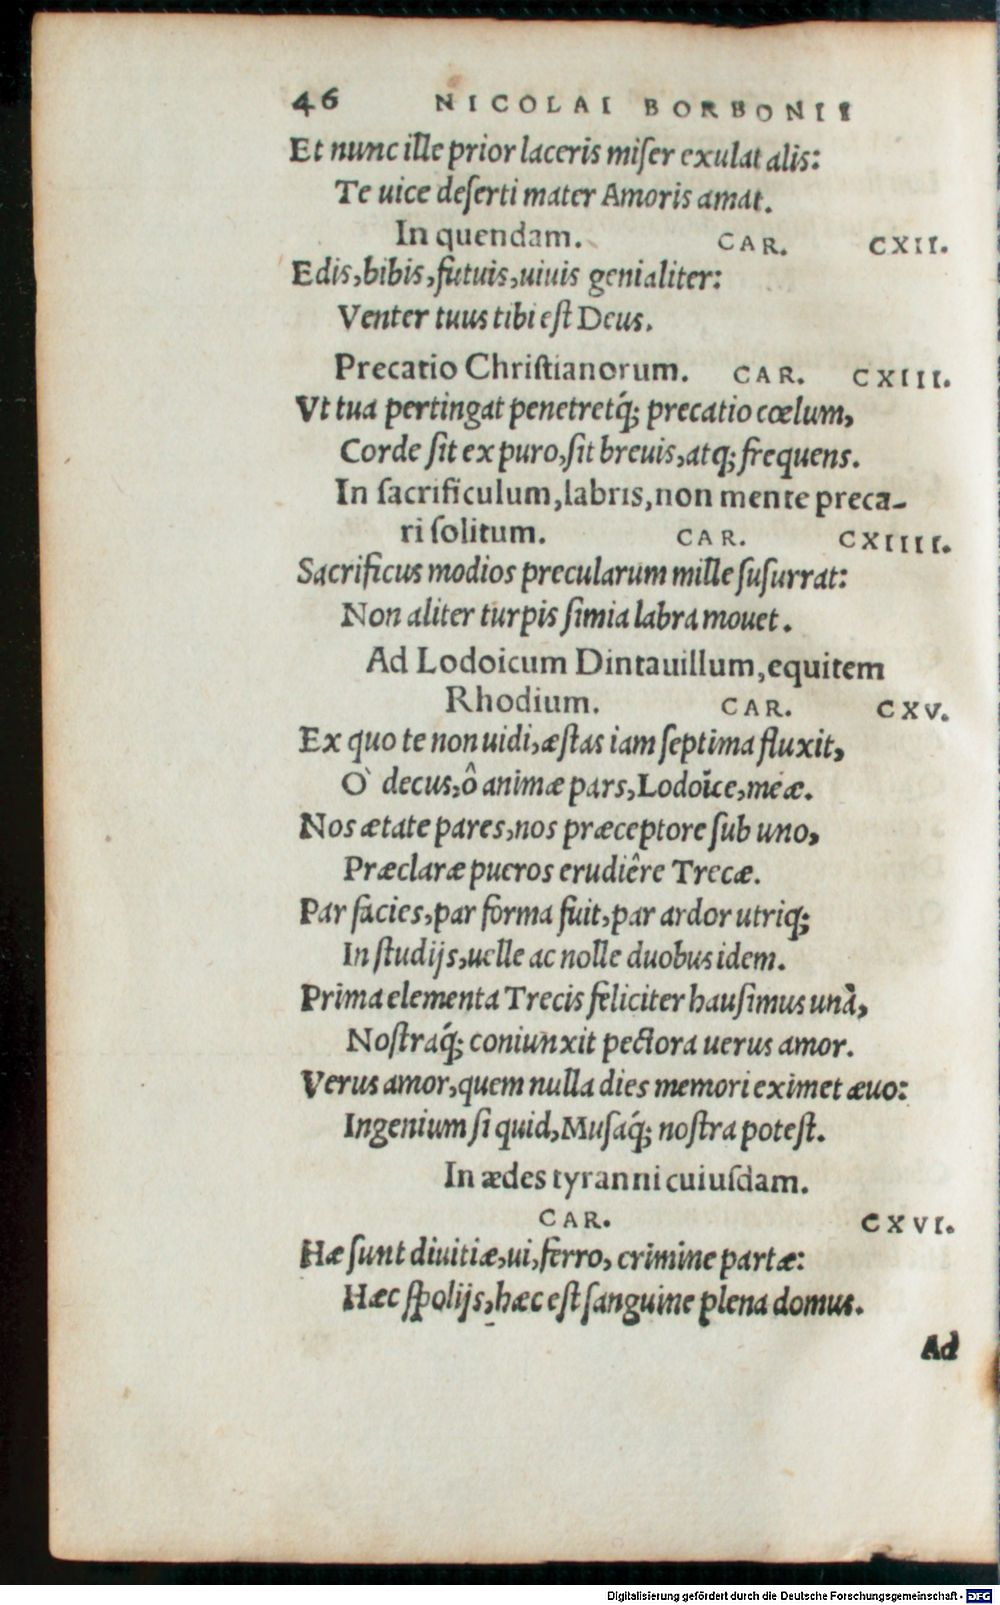 46 NICOLAI BORBONII
Et nunc ille prior laceris miſer exulat alis:
Te uice deſerti mater Amoris amat.
In quendam. CAR. CXII.
Edis, bibis, futuis, uiuis genialiter:
Venter tuus tibi eſt Deus.
Precatio Chriſtianorum. CAR. CXIII.
Vt tua pertingat penetretq́; precatio cœlum,
Corde ſit ex puro, ſit breuis, atq; frequens.
In ſacrificulum, labris, non mente preca-
ri ſolitum. CAR. CXIIII.
Sacrificus modios precularum mille ſuſurrat:
Non aliter turpis ſimia labra mouet.
Ad Lodoicum Dintauillum, equitem
Rhodium. CAR. CXV.
Ex quo te non uidi, æſtas iam ſeptima fluxit,
Ò decus, ô animæ pars, Lodoïce, meæ.
Nos ætate pares, nos præceptore ſub uno,
Præclaræ pueros erudiêre Trecæ.
Par facies, par forma fuit, par ardor utriq;
In ſtudijs, uelle ac nolle duobus idem.
Prima elementa Trecis feliciter hauſimus unà,
Noſtraq́; coniunxit pectora uerus amor.
Verus amor, quem nulla dies memori eximet æuo:
Ingenium ſi quid, Muſaq́; noſtra poteſt.
In ædes tyranni cuiuſdam.
CAR. CXVI.
Hæ ſunt diuitiæ, ui, ferro, crimine partæ:
Hæc ſpolijs, hæc eſt ſanguine plena domus.
Ad
Digitalisierung gefördert durch die Deutsche Forschungsgemeinschaft - DFG